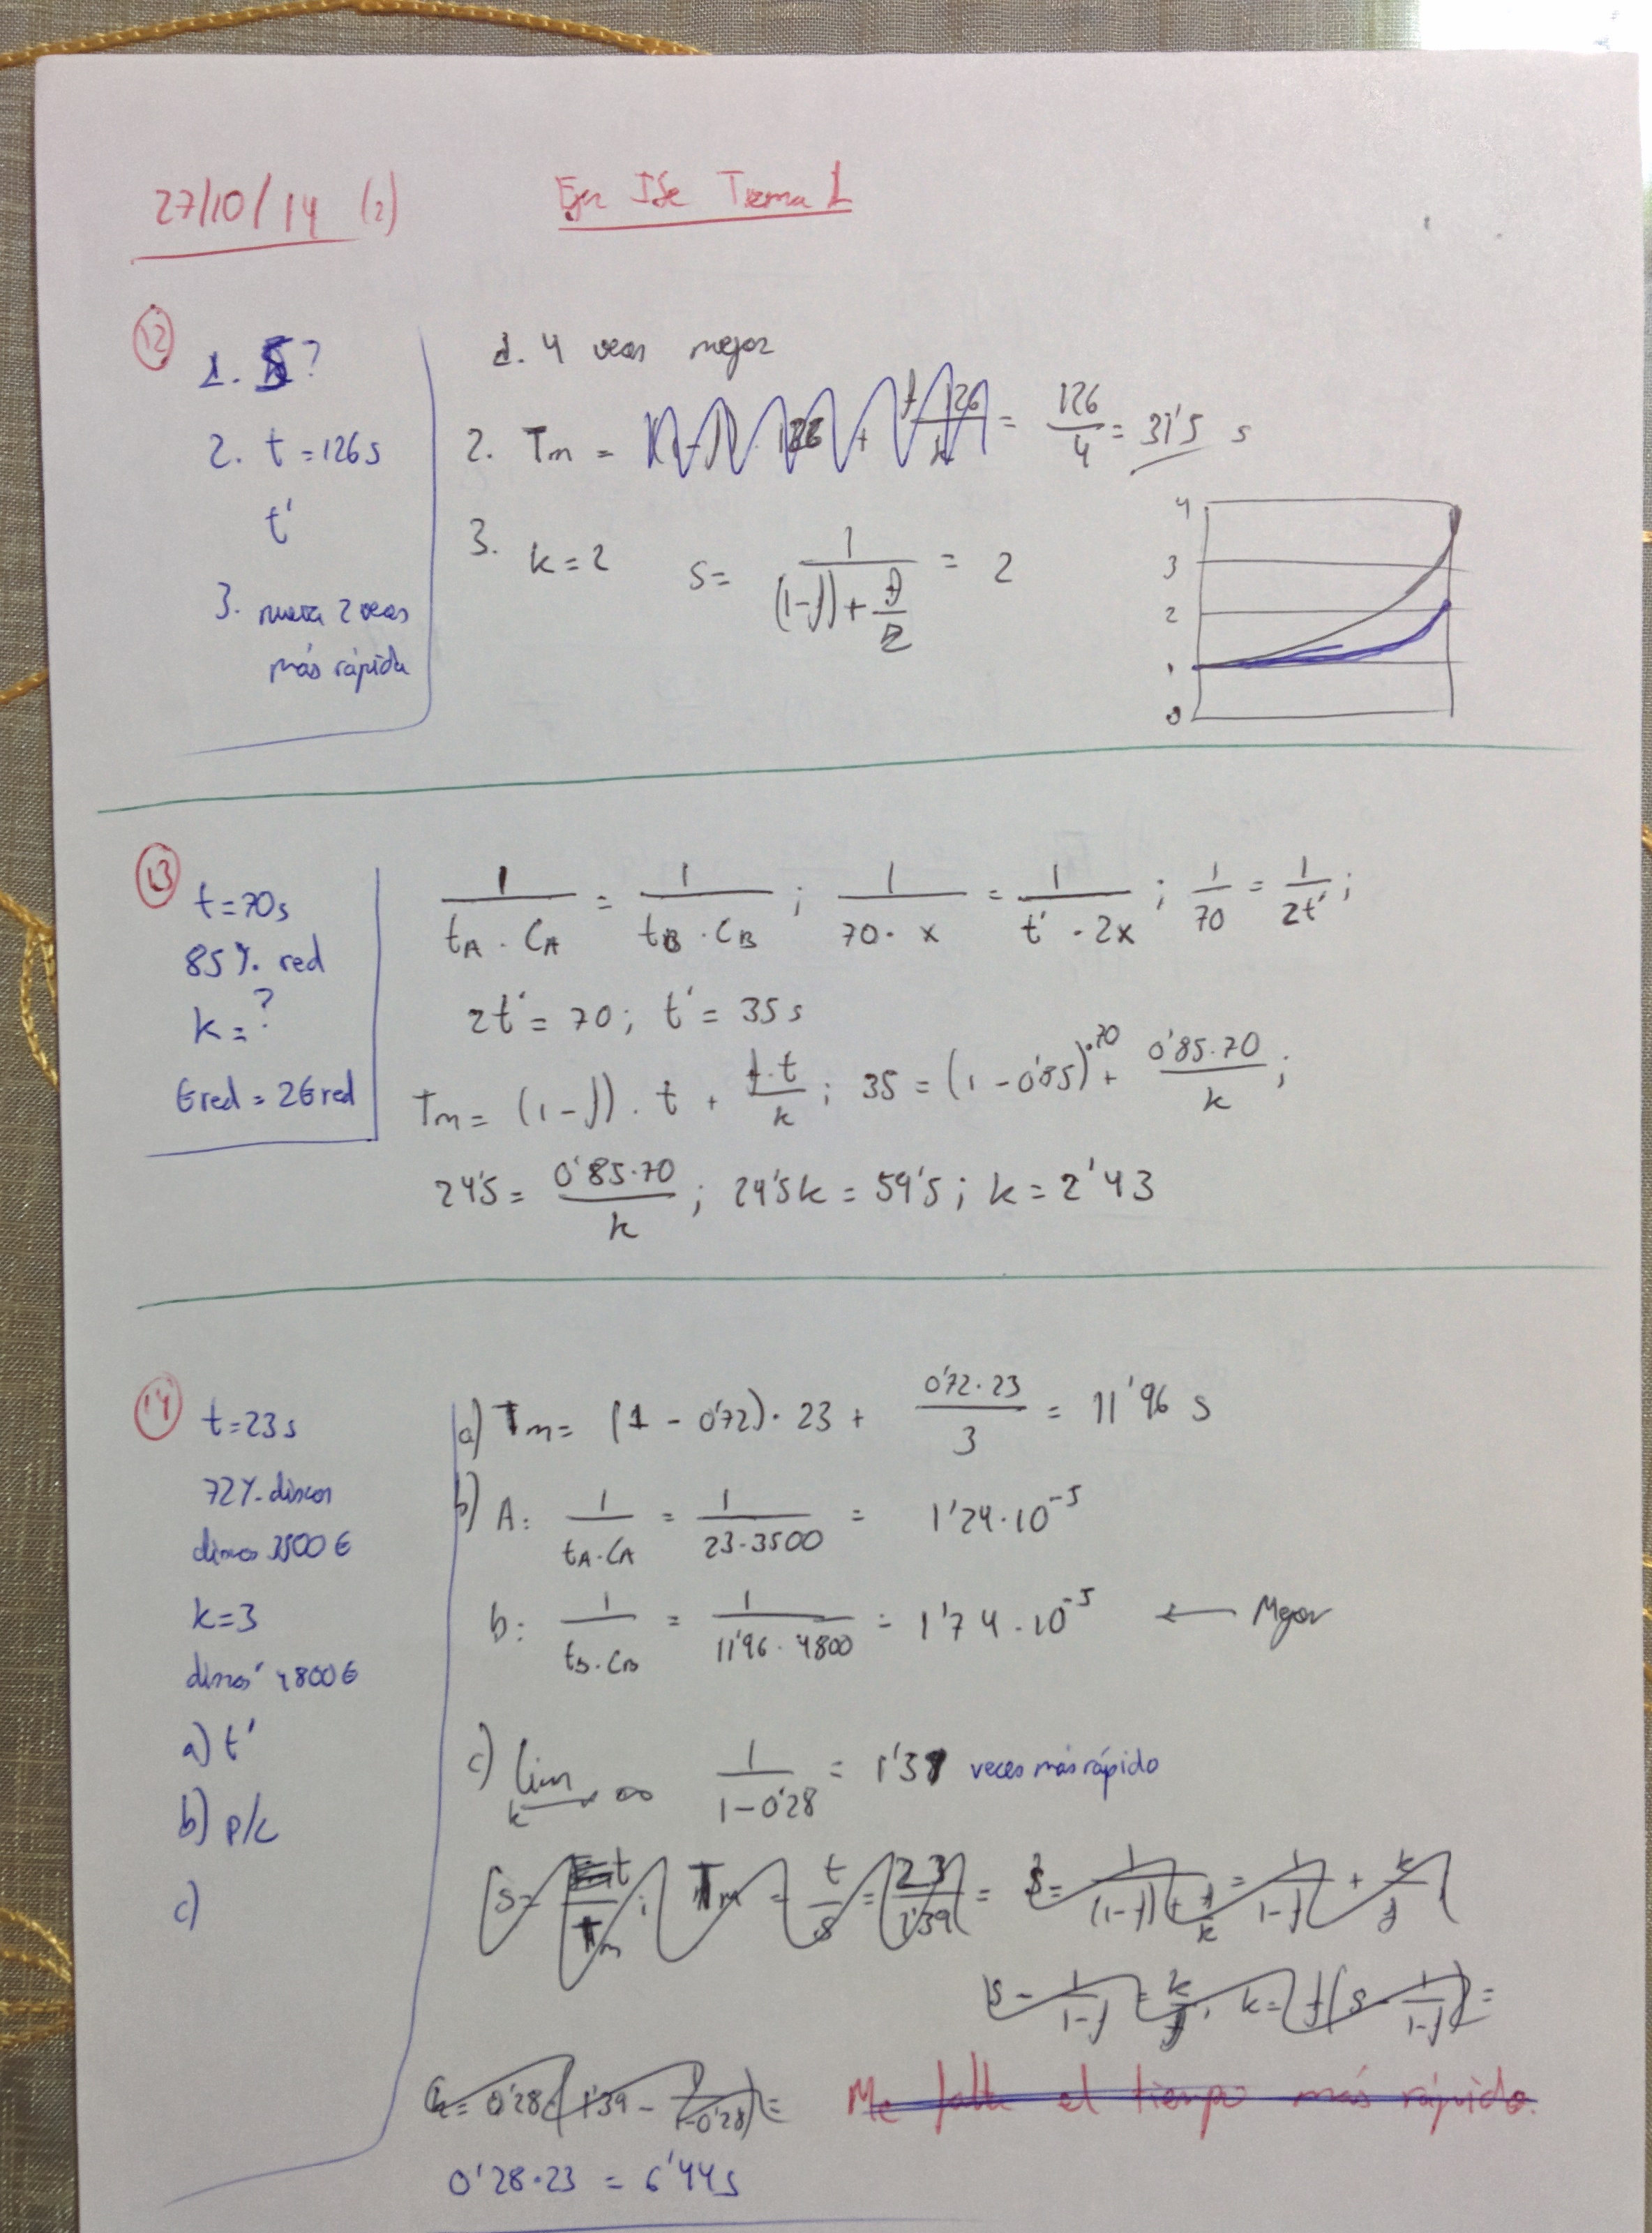 27/10/14 (2)
Ejer ISE Tema 1
12
1. S?
2. t = 126 s
t'
3. nueva 2 veces
más rápida
1. 4 veces mejor
2. Tm = = 126/4 = 31'5 s
3. k = 2 s = 1/((1-f) + f/2) = 2
4
3
2
1
0
13
t = 70 s
85% red
k = ?
€red = 2€red
1/(tA · CA) = 1/(tB · CB) ; 1/(70 · x) = 1/(t' · 2x) ; 1/70 = 1/2t' ;
2t' = 70 ; t' = 35 s
Tm = (1-f) · t + f·t/k ; 35 = (1 - 0'85)·70 + 0'85·70/k ;
24'5 = 0'85·70/k ; 24'5k = 59'5 ; k = 2'43
14
t = 23 s
72% discos
discos 3500 €
k = 3
discos' 4800 €
a) t'
b) p/c
c)
a) Tm = (1 - 0'72) · 23 + 0'72·23/3 = 11'96 s
b) A: 1/(tA·CA) = 1/(23·3500) = 1'24·10^-5
b: 1/(tB·CB) = 1/(11'96·4800) = 1'74·10^-5 ← Mejor
c) lim k→∞ 1/(1-0'28) = 1'39 veces más rápido
s = t/Tm ; Tm = t/s = 23/1'39 = s = 1/((1-f) + f/k) = 1/(1-f) + k/f
s - 1/(1-f) = k/f ; k = f(s - 1/(1-f)) =
k = 0'28(1'39 - 1/(1-0'28)) =
Me falta el tiempo más rápido.
0'28·23 = 6'44 s